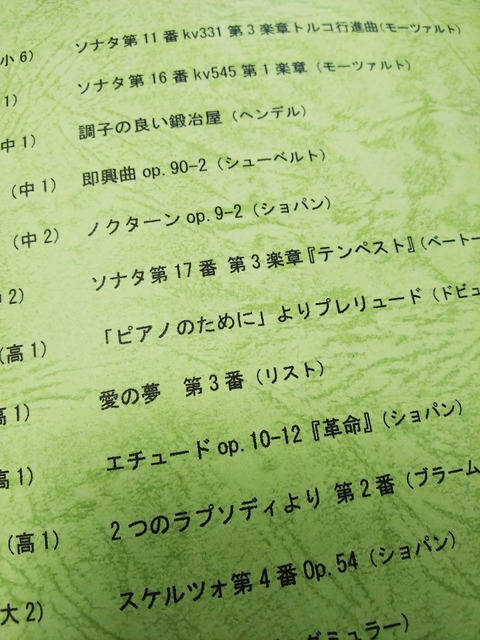 小6) ソナタ第11番kv331第3楽章トルコ行進曲(モーツァルト)
1) ソナタ第16番kv545第1楽章 (モーツァルト)
中1) 調子の良い鍛冶屋 (ヘンデル)
(中1) 即興曲 op.90-2 (シューベルト)
(中2) ノクターン op.9-2 (ショパン)
2) ソナタ第17番 第3楽章『テンペスト』(ベートー
(高1) 「ピアノのために」よりプレリュード (ドビュ
高1) 愛の夢 第3番 (リスト)
高1) エチュード op.10-12『革命』(ショパン)
(高1) 2つのラプソディより 第2番 (ブラーム
大2) スケルツォ第4番 Op.54 (ショパン)
グミュラー)